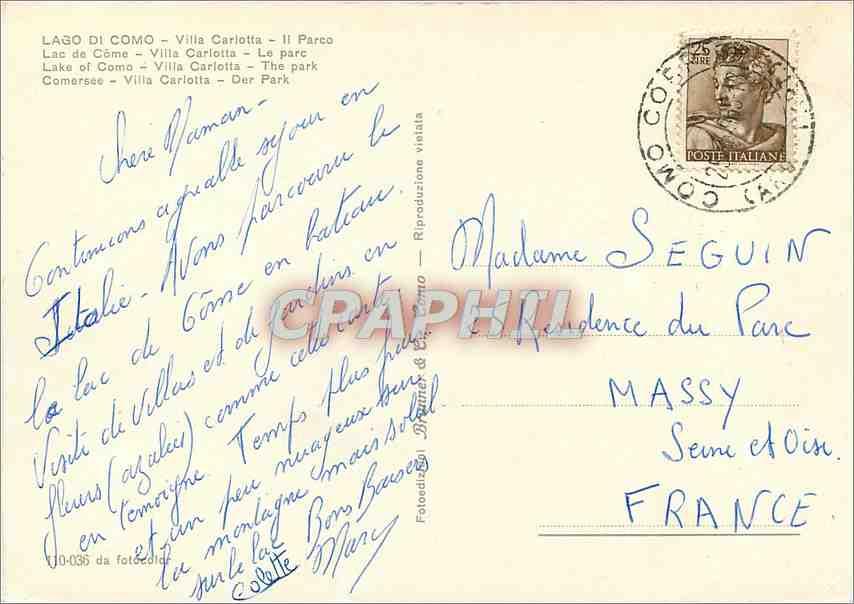 LAGO DI COMO – Villa Carlotta – Il Parco
Lac de Côme – Villa Carlotta – Le parc
Lake of Como – Villa Carlotta – The park
Comersee – Villa Carlotta – Der Park
Chère Maman –
Continuons agréable séjour en
Italie – Avons parcouru le
le lac de Côme en bateau.
Visité de Villas et de jardins en
fleurs (azalées) comme cette carte
en témoigne. Temps plus
et un peu nuageux sur
la montagne mais soleil
sur le lac Bons Baisers
Colette Marc
110-036 da fotocolor
Fotoedizioni Brunner & C. Como — Riproduzione vietata
CPAPHIL
25
LIRE
POSTE ITALIANE
COMO
Madame SEGUIN
Résidence du Parc
MASSY
Seine et Oise.
FRANCE